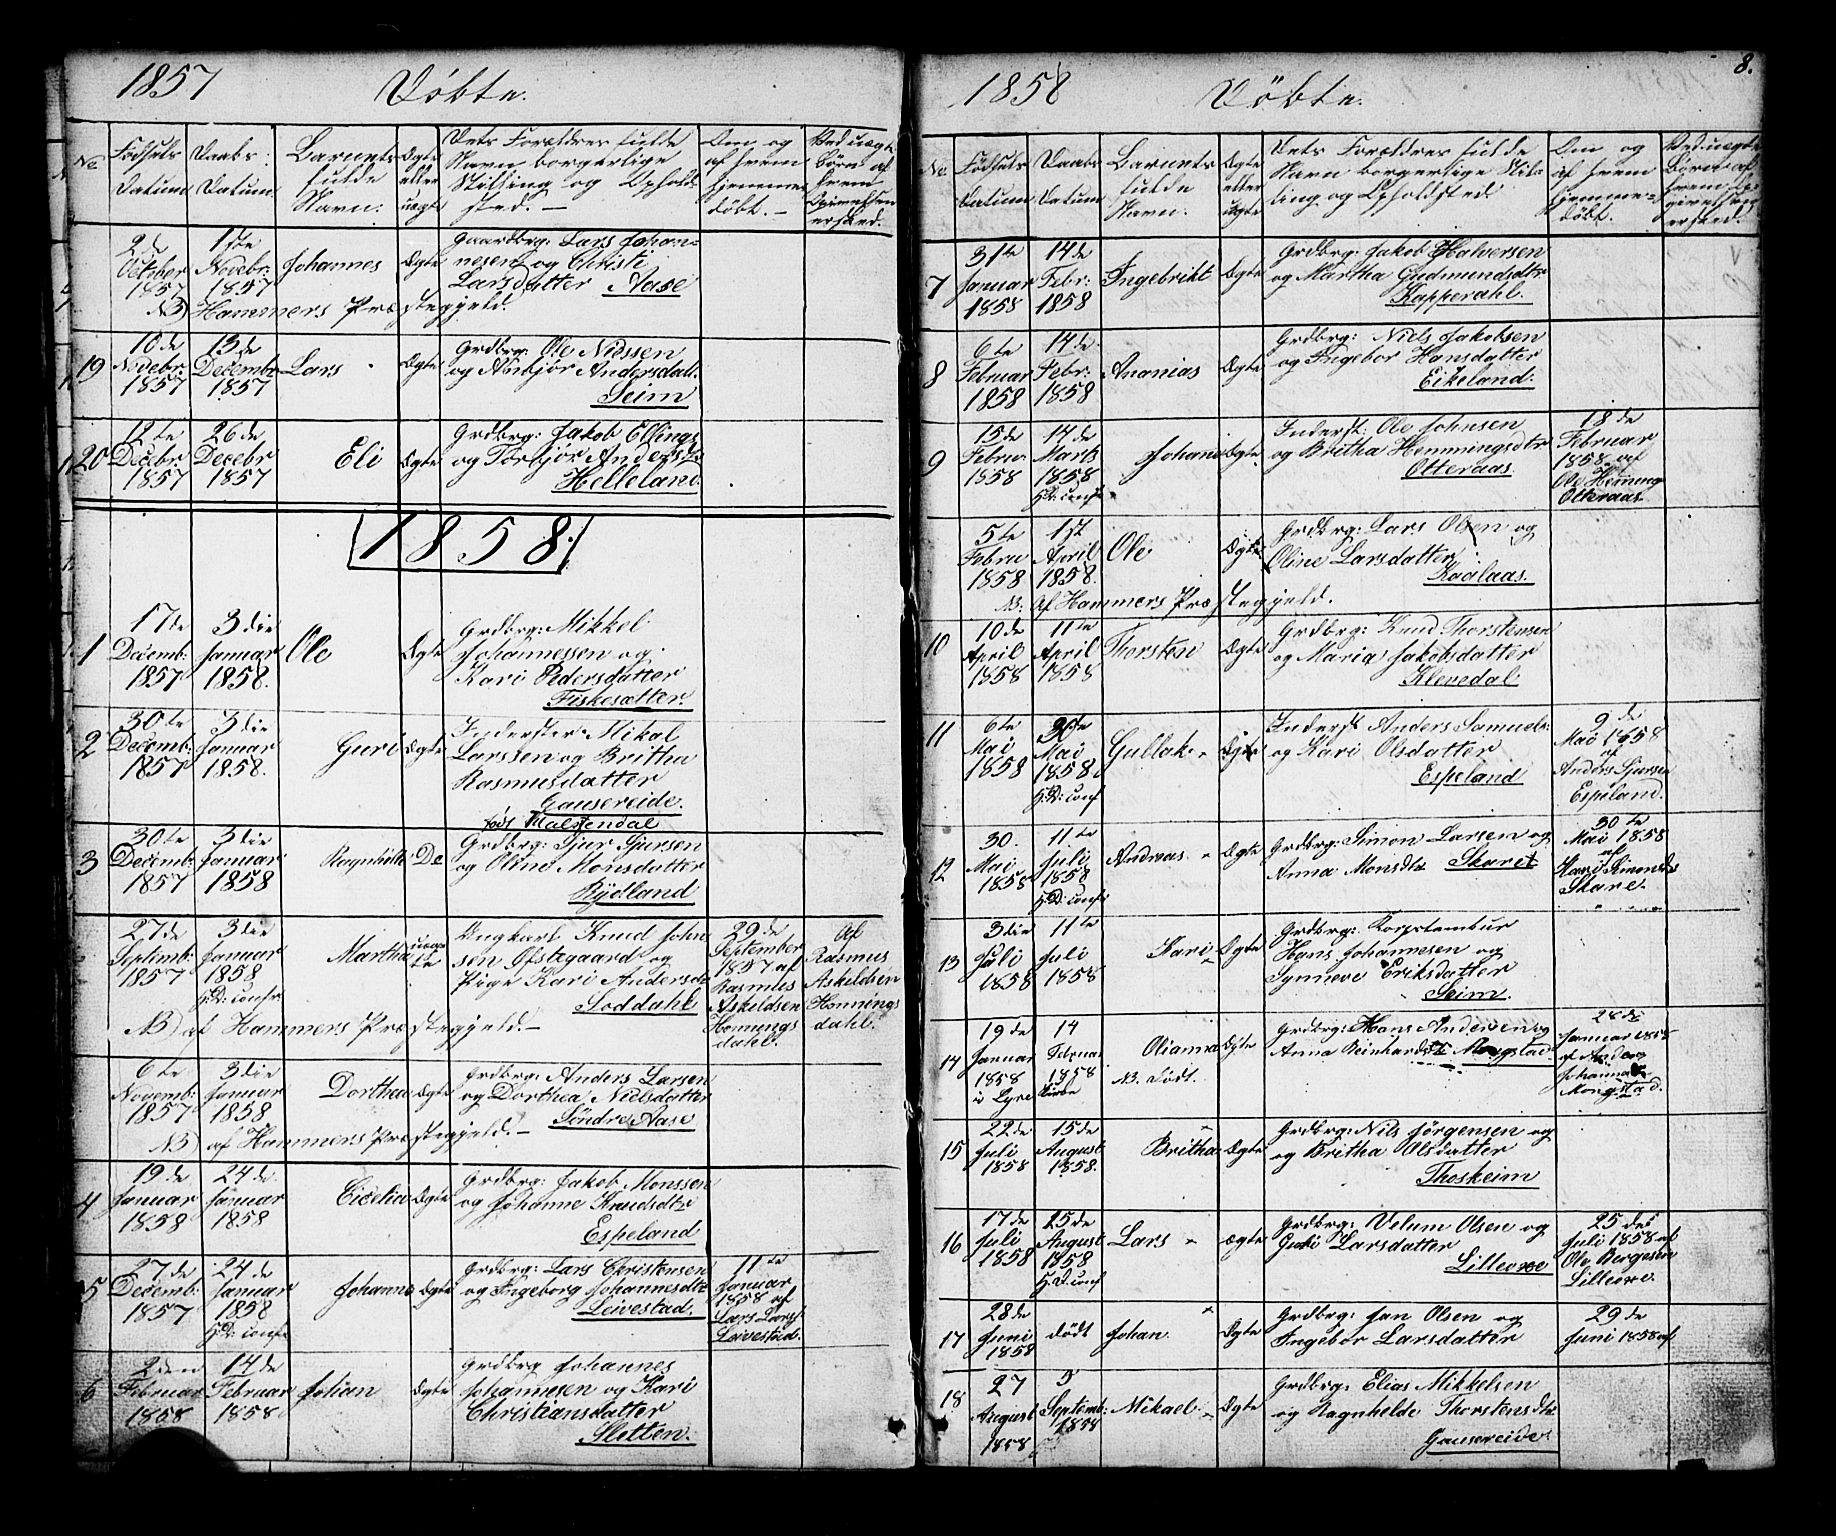 1857 Döbte.
No. Födsels Datum
Daabs Datum.
Barnets fulde Navn.
Ægte eller uægte
Dets Forældres fulde Navn borgerlige Stilling og Opholdsted.
Om og af hvem hjemmedöbt.
Ved uægte Börn af hvem Opivelsen er sked.
2de October 1857
1ste Novebr. 1857
Johannes
Ægte
Gaardbrg: Lars Johan-
nesen og Christi
Larsdatter Aase
NB) Hammers Præstegjeld.
19
10de Novebr. 1857
13de Decembr 1857
Lars
Ægte
Grdbrg: Ole Nilssen
og Anbjör Andersdatt.
Seim
20
12te Decebr. 1857
26de Decebr 1857
Eli
Ægte
Grdbrg: Jakob Ellings
og Torbjör Andersdt
Helleland
1858.
1
17de Decemb: 1857
3die Januar 1858.
Ole
Ægte
Grdbrg: Mikkel
Johannessen og
Kari Pedersdatter
Fiskesætter.
2
30te Decemb: 1857
3die Januar 1858.
Guri
Ægte
Inderster Mikal
Larssen og Britha
Rasmusdatter
Gausereide.
födt Malstendal
3
30te Decemb: 1857
3die Januar 1858
Ragnhilde
De
Grdbrg: Sjur Sjursen
og Oline Monsdatter
Rydland
27de Septemb: 1857
3die Januar 1858
HD: conf.
Martha
uægte
Ungkarl Knud John
sen Ofstegaard og
Pige Kari Andersdt
Soddahl
29de
September
1857 af
Rasmus
Askeldsen
Hennings
dahl.
Af
Rasmus
Askeldsen
Hennings
dahl.
NB) af Hammers Præstegjeld.
6te Novemb: 1857
3die Januar 1858
Dorthea
Ægte
Grdbrg: Anders Larsen
og Dorthea Nielsdatter
Söndre Aase
NB) af Hammers Præstegjeld.
4
19de Januar 1858
24de Januar 1858
Cicilia
Ægte
Grdbrg: Jakob Monssen
og Johanne Knudsdtr
Espeland
5
27de Decemb: 1857
24de Januar 1858
HD: conf
Johanne
Ægte
Grdbrg: Lars Christensen
og Ingeborg Johannesdtr
Leivestad.
11te
Januar
1858 af
Lars Larss.
Leivestad.
6
2den Februar 1858
14de Februar 1858
Johan
Ægte
Grdbrg Johannes
Johannesen og Kari
Christiansdatter
Sletten.
8.
1858 Döbte.
No. Födsels Datum
Daabs Datum
Barnets fulde Navn.
Ægte eller uægte
Dets Forældres fulde Navn borgerlige Stilling og Opholdsted.
Om og af hvem hjemmedöbt.
Ved uægte Börn af hvem Opgivelsen er sked.
7
31te Januar 1858
14de Febr: 1858
Ingebrikt
Ægte
Grdbrg: Jakob Halversen
og Martha Gudmundsdtr
Kapperdahl.
8
6te Februar 1858
14de Febr: 1858
Ananias
Ægte
Grdbrg: Niels Jakobsen
og Ingebor Hansdatter
Eikeland.
9
15de Febru 1858
14de Marts 1858
HD: conf.
Johan
Ægte
Inderst: Ole Johnsen
og Britha Hemmingsdtr
Otteraas.
18de
Februar
1858 af
Ole Heming
Otteraas.
5te Febru 1858
1st April 1858.
Ole
Ægte
Grdbrg: Lars Olsen og
Oline Larsdatter
Kaalaas.
NB. Af Hammers Præstegjeld.
10
10de April 1858
11te April 1858
Thorsten
Ægte
Grdbrg: Knud Thorstensen
og Maria Jakobsdatter
Klevedal
11
6te Mai 1858
Mai 1858.
HD: conf
Gullak
Ægte
Inderst Anders Samuels.
og Kari Olsdatter
Espeland
9de
Mai 1858
af
Anders Sjursen
Espeland.
12
30. Mai 1858
11te Juli 1858
HD: conf.
Andreas.
Ægte
Grdbrg: Simon Larsen og
Anna Monsdtr Skaret
30te
Mai 1858
af
Kari Simonsdtr
Skare.
13
3die Juli 1858
11te Juli 1858
Kari
Ægte
Grdbrg: Korpstambur
Hans Johannesen og
Synneve Eriksdatter
Seim.
14
19de Januar 1858
i Lyre Kirke
14 Februar 1858
Olianna
Ægte
NB. Födt.
Grdbrg: Hans Andersen og
Anna Reinhardsdtr Mongstad.
28de
Januar 1858
af Anders
Johannes
Mongstad.
15
22de Juli 1858
15de August 1858.
Britha
Ægte
Grdbrg: Nils Jörgensen og
og Britha Olsdatter
Thoskeim
16
17de Juli 1858
25de August 1858
HD: conf
Lars
Ægte
Grdbrg: Velum Olsen og
Guri Larsdatter
Lilleore
25de
Juli 1858 af
Ole Börgesen
Lilleore.
17
28de Juni 1858
dödt
Johan.
Ægte
Grdbrg: Jan Olsen og
Ingebor Larsdatter
29de
Juni 1858 af
18
27 August 1858
5 Septemb. 1858
Mikael
Ægte
Grdbrg: Elias Mikkelsen
og Ragnhelde Thorstensdtr
Gausereide.